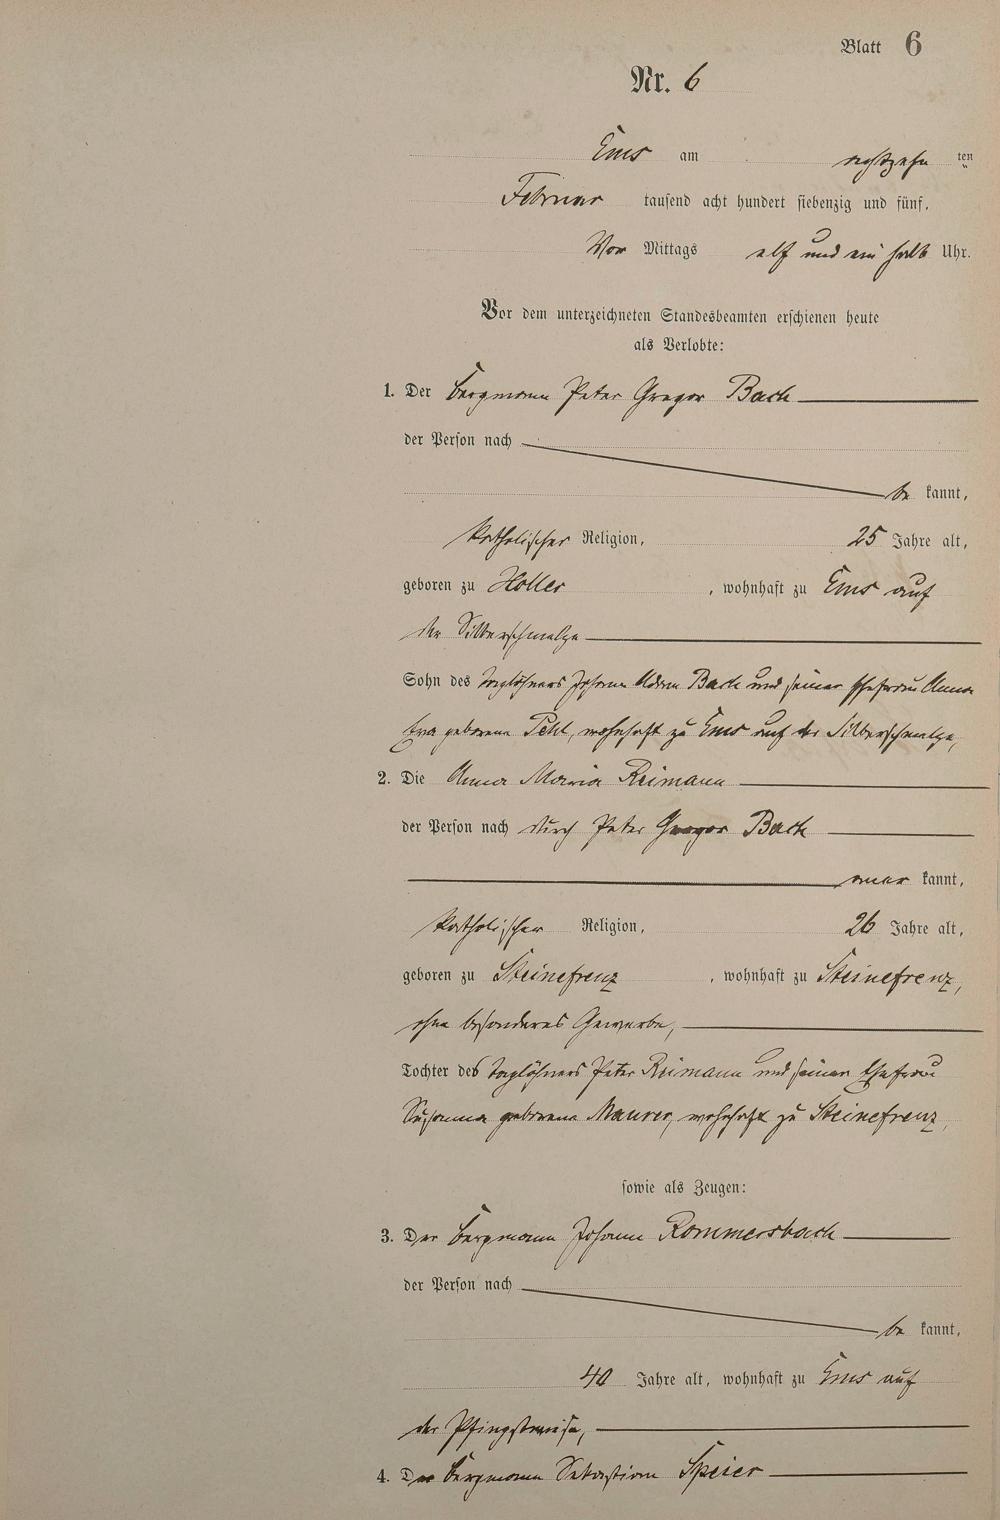 Blatt 6
Nr. 6
Ems am sechszehn ten
Februar tausend acht hundert siebenzig und fünf,
Vor Mittags elf und ein halb Uhr.
Vor dem unterzeichneten Standesbeamten erschienen heute
als Verlobte:
1. Der Bergmann Peter Gregor Bach
der Person nach
be kannt,
katholischer Religion, 25 Jahre alt,
geboren zu Holler, wohnhaft zu Ems auf
der Silberschmelze
Sohn des Taglöhners Johann Adam Bach und seiner Ehefrau Anna
Eva geborene Pehl, wohnhaft zu Ems auf der Silberschmelze,
2. Die Anna Maria Reimann
der Person nach durch Peter Gregor Bach
aner kannt,
katholischer Religion, 26 Jahre alt,
geboren zu Steinefrenz, wohnhaft zu Steinefrenz,
ohne besonderes Gewerbe,
Tochter des Taglöhners Peter Reimann und seiner Ehefrau
Susanna geborene Maurer, wohnhaft zu Steinefrenz,
sowie als Zeugen:
3. Der Bergmann Johann Rommersbach
der Person nach
be kannt,
40 Jahre alt, wohnhaft zu Ems auf
der Pfingstwiese,
4. Der Bergmann Sebastian Speier